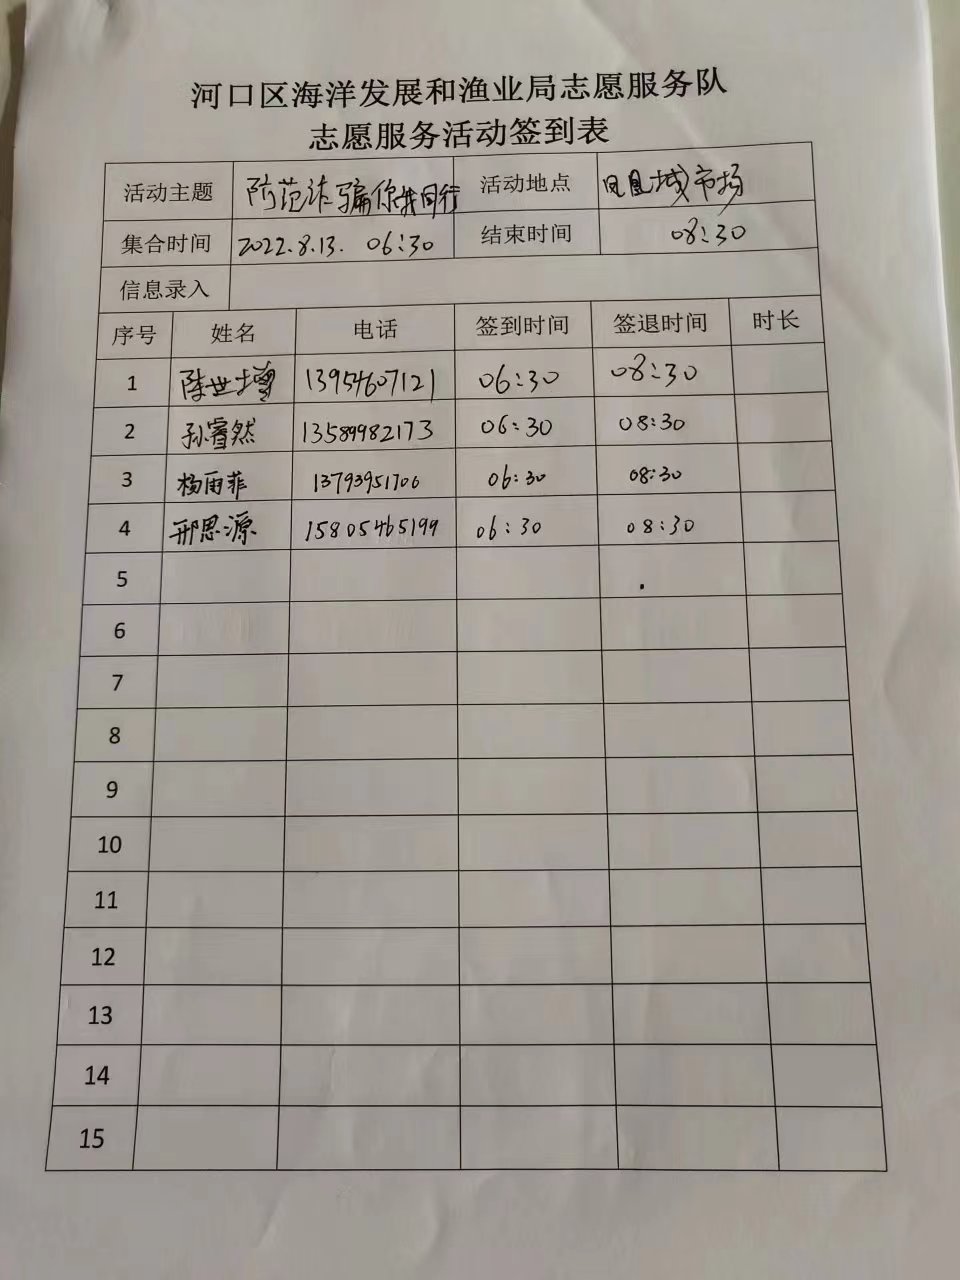 河口区海洋发展和渔业局志愿服务队
志愿服务活动签到表
活动主题 防范诈骗你我同行 活动地点 凤凰城市场
集合时间 2022.8.13. 06:30 结束时间 08:30
信息录入
序号 姓名 电话 签到时间 签退时间 时长
1 陈世增 13954607121 06:30 08:30
2 孙睿然 13589982173 06:30 08:30
3 杨雨菲 13793951706 06:30 08:30
4 邢思源 15805465199 06:30 08:30
5
6
7
8
9
10
11
12
13
14
15